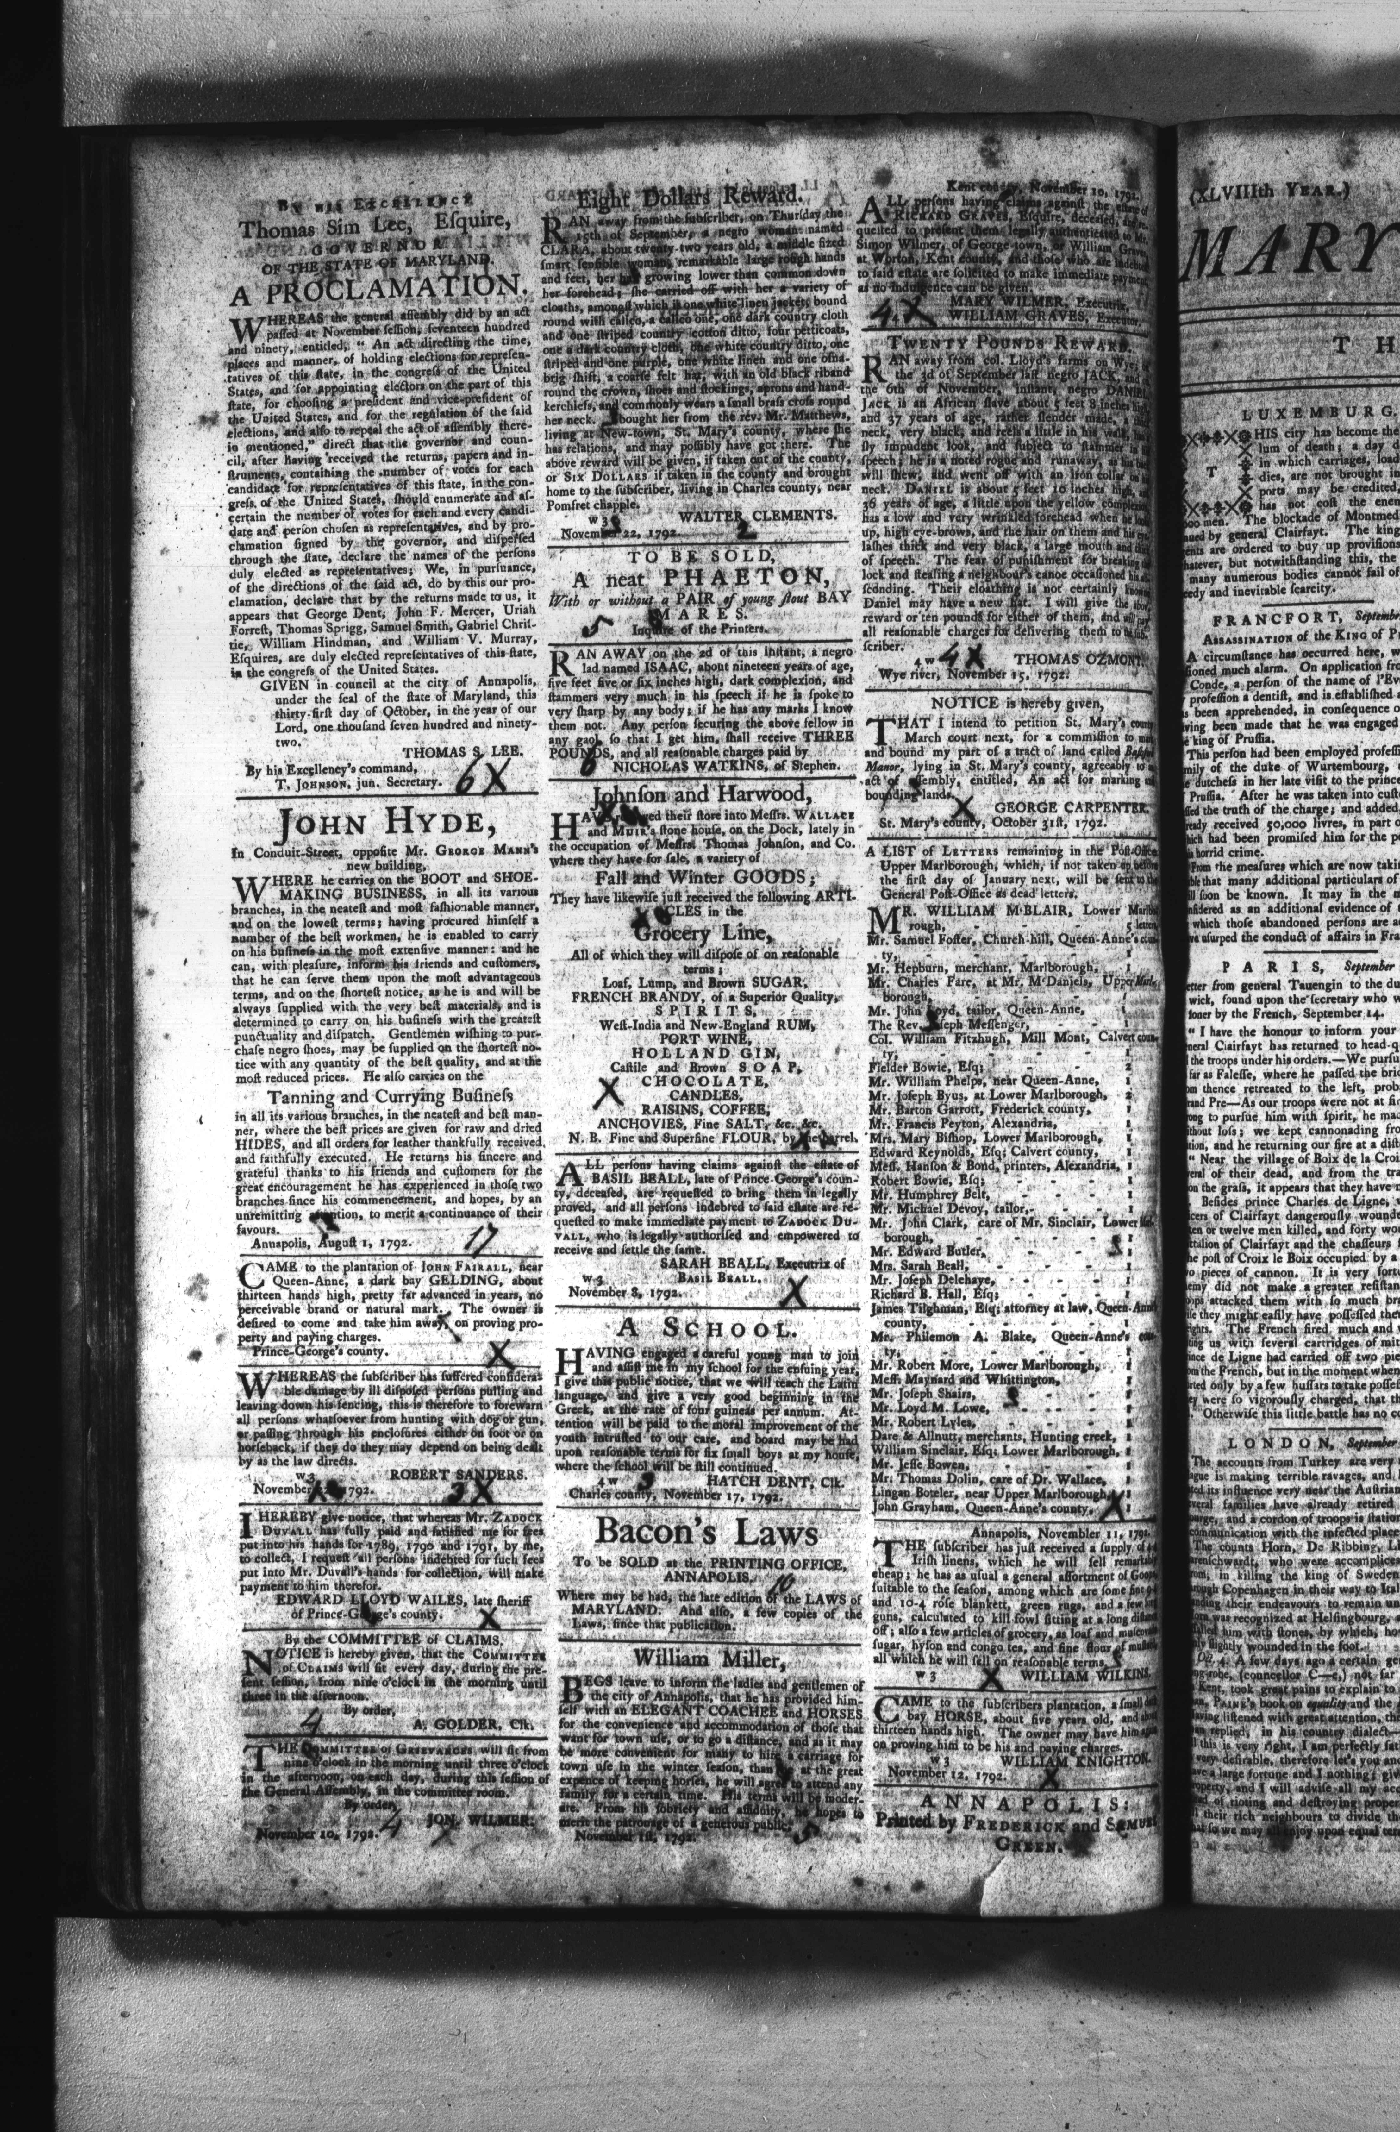 By his Excellency
Thomas Sim Lee, Esquire,
GOVERNOR
OF THE STATE OF MARYLAND.
A PROCLAMATION.
WHEREAS the general assembly did by an act
passed at November session, seventeen hundred
and ninety, entitled, "An act directing the time,
places and manner, of holding elections for represen-
tatives of this state, in the congress of the United
States, and for appointing electors on the part of this
state, for choosing a president and vice-president of
the United States, and for the regulation of the said
elections, and also to repeal the act of assembly there-
in mentioned," direct that the governor and coun-
cil, after having received the returns, papers and in-
struments, containing the number of votes for each
candidate for representatives of this state, in the con-
gress of the United States, should enumerate and as-
certain the number of votes for each and every candi-
date and person chosen as representatives, and by pro-
clamation signed by the governor, and dispersed
through the state, declare the names of the persons
duly elected as representatives; We, in pursuance,
of the directions of the said act, do by this our pro-
clamation, declare that by the returns made to us, it
appears that George Dent, John F. Mercer, Uriah
Forrest, Thomas Sprigg, Samuel Smith, Gabriel Chris-
tie, William Hindman, and William V. Murray,
Esquires, are duly elected representatives of this state,
in the congress of the United States.
GIVEN in council at the city of Annapolis,
under the seal of the state of Maryland, this
thirty-first day of October, in the year of our
Lord, one thousand seven hundred and ninety-
two.
THOMAS S. LEE.
By his Excellency's command,
T. Johnson, jun. Secretary. 6X
John Hyde,
In Conduit-Street, opposite Mr. George Mann's
new building,
WHERE he carries on the BOOT and SHOE-
MAKING BUSINESS, in all its various
branches, in the neatest and most fashionable manner,
and on the lowest terms; having procured himself a
number of the best workmen, he is enabled to carry
on his business in the most extensive manner: and he
can, with pleasure, inform his friends and customers,
that he can serve them upon the most advantageous
terms, and on the shortest notice, as he is and will be
always supplied with the very best materials, and is
determined to carry on his business with the greatest
punctuality and dispatch. Gentlemen wishing to pur-
chase negro shoes, may be supplied on the shortest no-
tice with any quantity of the best quality, and at the
most reduced prices. He also carries on the
Tanning and Currying Business
in all its various branches, in the neatest and best man-
ner, where the best prices are given for raw and dried
HIDES, and all orders for leather thankfully received,
and faithfully executed. He returns his sincere and
grateful thanks to his friends and customers for the
great encouragement he has experienced in those two
branches since his commencement, and hopes, by an
unremitting attention, to merit a continuance of their
favours.
Annapolis, August 1, 1792. 17
CAME to the plantation of John Fairall, near
Queen-Anne, a dark bay GELDING, about
thirteen hands high, pretty far advanced in years, no
perceivable brand or natural mark. The owner is
desired to come and take him away, on proving pro-
perty and paying charges.
Prince-George's county. X
WHEREAS the subscriber has suffered considera-
ble damage by ill disposed persons pulling and
leaving down his fencing, this is therefore to forewarn
all persons whatsoever from hunting with dog or gun,
or passing through his enclosures either on foot or on
horseback, if they do they may depend on being dealt
by as the law directs.
w3 ROBERT SANDERS.
November 1792. 3X
I HEREBY give notice, that whereas Mr. Zadock
Duvall has fully paid and satisfied me for fees
put into his hands for 1789, 1790 and 1791, by me,
to collect, I request all persons indebted for such fees
put into Mr. Duvall's hands for collection, will make
payment to him therefor.
EDWARD LLOYD WAILES, late sheriff
of Prince-George's county. X
By the COMMITTEE of CLAIMS.
NOTICE is hereby given, that the Committee
of Claims will sit every day, during the pre-
sent session, from nine o'clock in the morning until
three in the afternoon.
By order,
4 A. GOLDER, Clk.
THE Committee of Grievances will sit from
nine o'clock in the morning until three o'clock
in the afternoon, on each day, during this session of
the General Assembly, in the committee room.
By order,
4 JON. WILMER.
November 10, 1792.
Eight Dollars Reward.
RAN away from the subscriber, on Thursday the
15th of September, a negro woman named
CLARA, about twenty-two years old, a middle sized
smart sensible woman, remarkable large rough hands
and feet, her hair growing lower than common down
her forehead; she carried off with her a variety of
cloaths, amongst which is one white linen jacket bound
round with callico, a callico one, one dark country cloth
and one striped country cotton ditto, four petticoats,
one a dark country cloth, one white country ditto, one
striped and one purple, one white linen and one osna-
brig shift, a coarse felt hat, with an old black riband
round the crown, shoes and stockings, aprons and hand-
kerchiefs, and commonly wears a small brass cross round
her neck. I bought her from the rev. Mr. Matthews,
living at New-town, St. Mary's county, where she
has relations, and may possibly have got there. The
above reward will be given, if taken out of the county,
or Six Dollars if taken in the county and brought
home to the subscriber, living in Charles county, near
Pomfret chapple.
w3 WALTER CLEMENTS.
November 22, 1792. 2
TO BE SOLD,
A neat PHAETON,
With or without a PAIR of young stout BAY
MARES.
5 Inquire of the Printers.
RAN AWAY on the 2d of this instant, a negro
lad named ISAAC, about nineteen years of age,
five feet five or six inches high, dark complexion, and
stammers very much in his speech if he is spoke to
very sharp by any body; if he has any marks I know
them not. Any person securing the above fellow in
any gaol, so that I get him, shall receive THREE
POUNDS, and all reasonable charges paid by
6 NICHOLAS WATKINS, of Stephen.
Johnson and Harwood,
HAVE removed their store into Messrs. Wallace
and Muir's stone house, on the Dock, lately in
the occupation of Messrs. Thomas Johnson, and Co.
where they have for sale, a variety of
Fall and Winter GOODS;
They have likewise just received the following ARTI-
CLES in the
Grocery Line,
All of which they will dispose of on reasonable
terms;
Loaf, Lump, and Brown SUGAR,
FRENCH BRANDY, of a Superior Quality,
SPIRITS,
West-India and New-England RUM,
PORT WINE,
HOLLAND GIN,
Castile and Brown SOAP,
CHOCOLATE,
X CANDLES,
RAISINS, COFFEE,
ANCHOVIES, Fine SALT, &c. &c.
N. B. Fine and Superfine FLOUR, by the barrel.
ALL persons having claims against the estate of
BASIL BEALL, late of Prince-George's coun-
ty, deceased, are requested to bring them in legally
proved, and all persons indebted to said estate are re-
quested to make immediate payment to Zadock Du-
vall, who is legally authorised and empowered to
receive and settle the same.
SARAH BEALL, Executrix of
w3 Basil Beall.
November 8, 1792. X
A School.
HAVING engaged a careful young man to join
and assist me in my school for the ensuing year,
I give this public notice, that we will teach the Latin
language, and give a very good beginning in the
Greek, at the rate of four guineas per annum. At-
tention will be paid to the moral improvement of the
youth intrusted to our care, and board may be had
upon reasonable terms for six small boys at my house,
where the school will be still continued.
4w HATCH DENT, Clk.
Charles county, November 17, 1792.
Bacon's Laws
To be SOLD at the PRINTING OFFICE,
ANNAPOLIS. 10
Where may be had, the late edition of the LAWS of
MARYLAND. And also, a few copies of the
Laws, since that publication.
William Miller,
BEGS leave to inform the ladies and gentlemen of
the city of Annapolis, that he has provided him-
self with an ELEGANT COACHEE and HORSES
for the convenience and accommodation of those that
want for town use, or to go a distance, and as it may
be more convenient for many to hire a carriage for
town use in the winter season, than at the great
expence of keeping horses, he will agree to attend any
family for a certain time. His terms will be moder-
ate. From his sobriety and assiduity, he hopes to
merit the patronage of a generous public.
November 1792. 5
Kent county, November 10, 1792.
ALL persons having claims against the estate of
Richard Graves, Esquire, deceased, are re-
quested to present them legally authenticated to Mr.
Simon Wilmer, of George-town, or William Graves
at Worton, Kent county, and those who are indebted
to said estate are solicited to make immediate payment,
as no indulgence can be given.
MARY WILMER, Executrix,
4.X WILLIAM GRAVES, Executor.
Twenty Pounds Reward.
RAN away from col. Lloyd's farms on Wye
the 3d of September last negro JACK, and
the 6th of November, instant, negro DANIEL
Jack is an African slave about 5 feet 8 inches high
and 37 years of age, rather slender made,
neck, very black, and reels a little in his walk,
sly impudent look, and subject to stammer in
speech; he is a noted rogue and runaway, as his
will shew, and went off with an iron collar on
neck. Daniel is about 5 feet 10 inches high,
36 years of age, a little upon the yellow complexion,
has a low and very wrinkled forehead when he
up, high eye-brows, and the hair on them and his eye
lashes thick and very black, a large mouth and
of speech. The fear of punishment for breaking
lock and stealing a neighbour's canoe occasioned his
sconding. Their cloathing is not certainly known
Daniel may have a new hat. I will give the above
reward or ten pounds for either of them, and will pay
all reasonable charges for delivering them to the sub-
scriber.
4w 4X THOMAS OZMONT.
Wye river, November 15, 1792.
NOTICE is hereby given,
THAT I intend to petition St. Mary's county
March court next, for a commission to
and bound my part of a tract of land called
Manor, lying in St. Mary's county, agreeably to
act of assembly, entitled, An act for marking
bounding lands.
X GEORGE CARPENTER.
St. Mary's county, October 31st, 1792.
A LIST of Letters remaining in the Post-Office
Upper Marlborough, which, if not taken up before
the first day of January next, will be sent to the
General Post-Office as dead letters.
MR. WILLIAM M'BLAIR, Lower Marlbo-
rough, 5 letters
Mr. Samuel Foster, Church-hill, Queen-Anne's coun-
ty,
Mr. Hepburn, merchant, Marlborough, 1
Mr. Charles Fare, at Mr. M'Daniels, Upper Marl-
borough,
Mr. John Boyd, tailor, Queen-Anne, 1
The Rev. Joseph Messenger, 1
Col. William Fitzhugh, Mill Mont, Calvert coun-
ty;
Fielder Bowie, Esq; 2
Mr. William Phelps, near Queen-Anne, 1
Mr. Joseph Byus, at Lower Marlborough, 2
Mr. Barton Garrott, Frederick county, 1
Mr. Francis Peyton, Alexandria, 1
Mrs. Mary Bishop, Lower Marlborough, 1
Edward Reynolds, Esq; Calvert county, 1
Mess. Hanson & Bond, printers, Alexandria, 1
Robert Bowie, Esq; 1
Mr. Humphrey Belt, 1
Mr. Michael Devoy, tailor, 1
Mr. John Clark, care of Mr. Sinclair, Lower Marl-
borough, 1
Mr. Edward Butler, 1
Mrs. Sarah Beall, 1
Mr. Joseph Delehaye, 1
Richard B. Hall, Esq; 1
James Tilghman, Esq; attorney at law, Queen-Anne
county, 1
Mr. Philemon A. Blake, Queen-Anne's coun-
ty; 1
Mr. Robert More, Lower Marlborough, 1
Mess. Maynard and Whittington, 1
Mr. Joseph Shairs, 1
Mr. Loyd M. Lowe, 1
Mr. Robert Lyles, 1
Dare & Allnutt, merchants, Hunting creek, 1
William Sinclair, Esq; Lower Marlborough, 1
Mr. Jesse Bowen, 1
Mr. Thomas Dolin, care of Dr. Wallace, 1
Lingan Boteler, near Upper Marlborough,
John Grayham, Queen-Anne's county, X
Annapolis, November 11, 1792.
THE subscriber has just received a supply of 4-4
Irish linens, which he will sell remarkably
cheap; he has as usual a general assortment of Goods
suitable to the season, among which are some fine 9-4
and 10-4 rose blankett, green rugs, and a few long
guns, calculated to kill fowl sitting at a long distance
off; also a few articles of grocery, as loaf and muscovado
sugar, hyson and congo tea, and fine flour of mustard,
all which he will sell on reasonable terms.
w3 X WILLIAM WILKINS.
CAME to the subscribers plantation, a small dark
bay HORSE, about five years old, and about
thirteen hands high. The owner may have him again
on proving him to be his and paying charges.
w3 WILLIAM KNIGHTON.
November 12, 1792. X
ANNAPOLIS:
Printed by Frederick and Samuel
Green.
(XLVIIIth Year.)
MARY
T H
LUXEMBURG,
HIS city has become the
lum of death; a day
in which carriages, load
dies, are not brought in
ports may be credited,
has not cost the ene
men. The blockade of Montmed
general Clairfayt. The king
are ordered to buy up provisions
but notwithstanding this, the
many numerous bodies cannot fail of
and inevitable scarcity.
FRANCFORT, September
Assassination of the King of Pr
A circumstance has occurred here, w
much alarm. On application fro
Conde, a person of the name of l'Ev
profession a dentist, and is established i
been apprehended, in consequence o
been made that he was engaged
king of Prussia.
This person had been employed professi
of the duke of Wurtembourg,
dutchess in her late visit to the prince
Prussia. After he was taken into cust
the truth of the charge; and added
received 50,000 livres, in part o
had been promised him for the p
horrid crime.
From the measures which are now takin
that many additional particulars of
soon be known. It may in the
as an additional evidence of
which those abandoned persons are
usurped the conduct of affairs in Fra
PARIS, September
from general Tauengin to the du
wick, found upon the secretary who w
by the French, September 14.
"I have the honour to inform your
Clairfayt has returned to head-q
the troops under his orders.—We pursu
far as Falesse, where he passed the bric
thence retreated to the left, prob
Pre—As our troops were not at fir
to pursue him with spirit, he ma
loss; we kept cannonading fro
and he returning our fire at a dist
"Near the village of Boix de la Croi
of their dead, and from the tra
on the grass, it appears that they have n
Besides prince Charles de Ligne,
of Clairfayt dangerously wounde
or twelve men killed, and forty wou
of Clairfayt and the chasseurs
post of Croix le Boix occupied by
pieces of cannon. It is very fort
did not make a greater resistan
attacked them with so much bra
they might easily have possessed thei
The French fired much and
us with several cartridges of mit
de Ligne had carried off two pie
the French, but in the moment when
only by a few hussars to take possess
were so vigorously charged, that th
Otherwise this little battle has no co
LONDON, September
The accounts from Turkey are very
is making terrible ravages, and
its influence very near the Austrian
families have already retired
and a cordon of troops is station
communication with the infected place
The counts Horn, De Ribbing, Li
who were accomplic
in killing the king of Sweden
Copenhagen in their way to
their endeavours to remain un
was recognized at Helsingbourg,
him with stones, by which, how
slightly wounded in the foot.
Oct. 4. A few days ago a certain ge
(connsellor C—e,) not far
Kent, took great pains to explain to
Paine's book on equality and the
having listened with great attention, th
replied, in his country dialect
this is very right, I am perfectly sati
very desirable, therefore let's you an
a large fortune and I nothing; giv
property, and I will advise all my acq
of rioting and destroying proper
their rich neighbours to divide th
so we may all enjoy upon equal ter